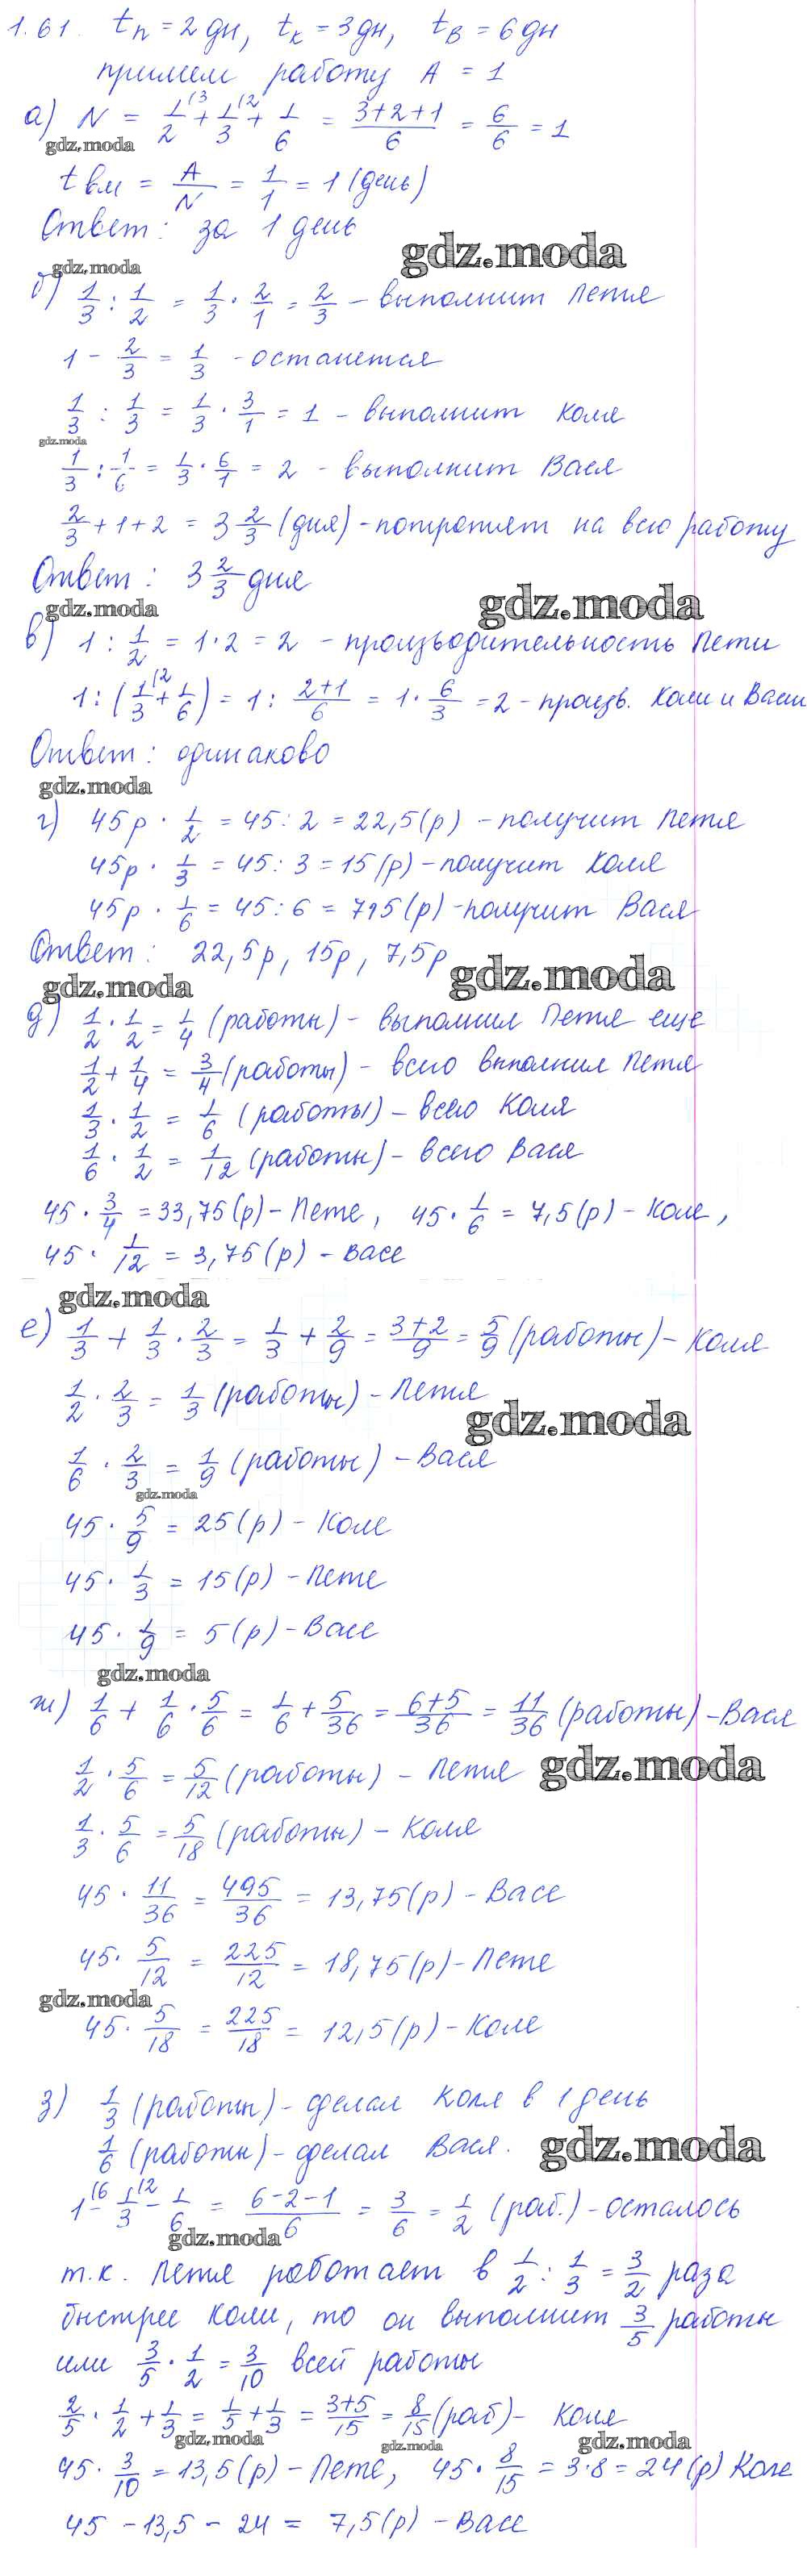 1.61. tп = 2 дн, tк = 3 дн, tв = 6 дн
примем работу A = 1
а) N = 1/2 (3 + 1/3 (2 + 1/6 = (3+2+1)/6 = 6/6 = 1
gdz.moda
tвм = A/N = 1/1 = 1 (день)
Ответ: за 1 день
gdz.moda
gdz.moda
б) 1/3 : 1/2 = 1/3 · 2/1 = 2/3 – выполнит Петя
1 - 2/3 = 1/3 - останется
1/3 : 1/3 = 1/3 · 3/1 = 1 – выполнит Коля
gdz.moda
1/3 : 1/6 = 1/3 · 6/1 = 2 - выполнит Вася
2/3 + 1 + 2 = 3 2/3 (дня) - потратят на всю работу
Ответ: 3 2/3 дня
gdz.moda
gdz.moda
в) 1 : 1/2 = 1·2 = 2 - производительность Пети
1 : (1/3 (2 + 1/6) = 1 : (2+1)/6 = 1 · 6/3 = 2 - произв. Коли и Васи
Ответ: одинаково
gdz.moda
г) 45р · 1/2 = 45 : 2 = 22,5(р) - получит Петя
45р · 1/3 = 45 : 3 = 15(р) - получит Коля
45р · 1/6 = 45 : 6 = 7,5(р) - получит Вася
Ответ: 22,5р, 15р, 7,5р
gdz.moda
gdz.moda
д) 1/2 · 1/2 = 1/4 (работы) - выполнил Петя еще
1/2 + 1/4 = 3/4 (работы) - всего выполнил Петя
1/3 · 1/2 = 1/6 (работы) - всего Коля
1/6 · 1/2 = 1/12 (работы) - всего Вася
45 · 3/4 = 33,75(р) - Пете, 45 · 1/6 = 7,5(р) - Коле,
45 · 1/12 = 3,75(р) - Васе
gdz.moda
е) 1/3 + 1/3 · 2/3 = 1/3 + 2/9 = (3+2)/9 = 5/9 (работы) - Коля
1/2 · 2/3 = 1/3 (работы) - Петя
gdz.moda
1/6 · 2/3 = 1/9 (работы) - Вася
gdz.moda
45 · 5/9 = 25(р) - Коле
45 · 1/3 = 15(р) - Пете
45 · 1/9 = 5(р) - Васе
gdz.moda
ж) 1/6 + 1/6 · 5/6 = 1/6 + 5/36 = (6+5)/36 = 11/36 (работы) - Вася
1/2 · 5/6 = 5/12 (работы) - Петя
gdz.moda
1/3 · 5/6 = 5/18 (работы) - Коля
45 · 11/36 = 495/36 = 13,75(р) - Васе
45 · 5/12 = 225/12 = 18,75(р) - Пете
gdz.moda
45 · 5/18 = 225/18 = 12,5(р) - Коле
з) 1/3 (работы) - сделал Коля в 1 день
1/6 (работы) - сделал Вася.
gdz.moda
1 (6 - 1/3 (2 - 1/6 = (6-2-1)/6 = 3/6 = 1/2 (раб.) - осталось
gdz.moda
т.к. Петя работает в 1/2 : 1/3 = 3/2 раза
быстрее Коли, то он выполнит 3/5 работы
или 3/5 · 1/2 = 3/10 всей работы
2/5 · 1/2 + 1/3 = 1/5 + 1/3 = (3+5)/15 = 8/15 (раб) - Коля
gdz.moda
gdz.moda
gdz.moda
45 · 3/10 = 13,5(р) - Пете, 45 · 8/15 = 3·8 = 24(р) Коле
45 - 13,5 - 24 = 7,5(р) - Васе